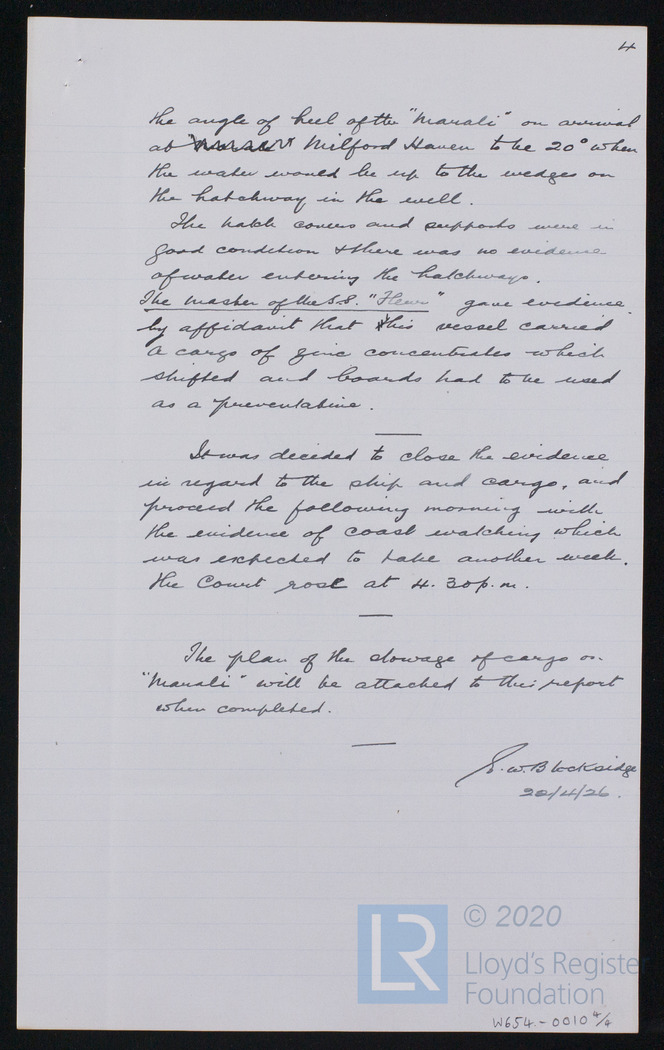 4
the angle of heel of the "Marali" on arrival
at Milford Haven to be 20° when
the water would be up to the wedges on
the hatchway in the well.
The hatch covers and supports were in
good condition & there was no evidence
of water entering the hatchways.
The Master of the S.S. " " gave evidence
by affidavit that this vessel carried
a cargo of zinc concentrates which
shifted and boards had to be used
as a preventative.
It was decided to close the evidence
in regard to the ship and cargo, and
proceed the following morning with
the evidence of coast watching which
was expected to take another week.
The Court rose at 4.30 p.m.
The plan of the stowage of cargo on
"Marali" will be attached to this report
when completed.
E.W. Blocksidge
20/4/26.
LR
© 2020
Lloyd's Register
Foundation
W654-0010 4/4